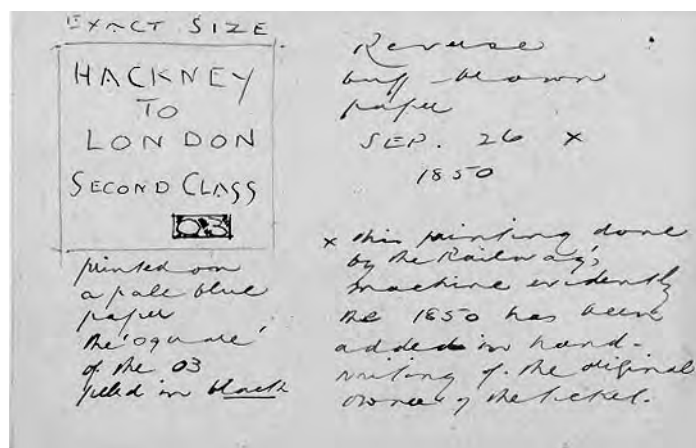 EXACT SIZE
HACKNEY
TO
LONDON
SECOND CLASS
03
printed on
a pale blue
paper
the 'square'
of the 03
filled in black
Reverse
buff-brown
paper
SEP. 26 x
1850
x this printing done
by the Railway's
machine evidently
the 1850 has been
added in hand-
writing of the original
owner of the ticket.